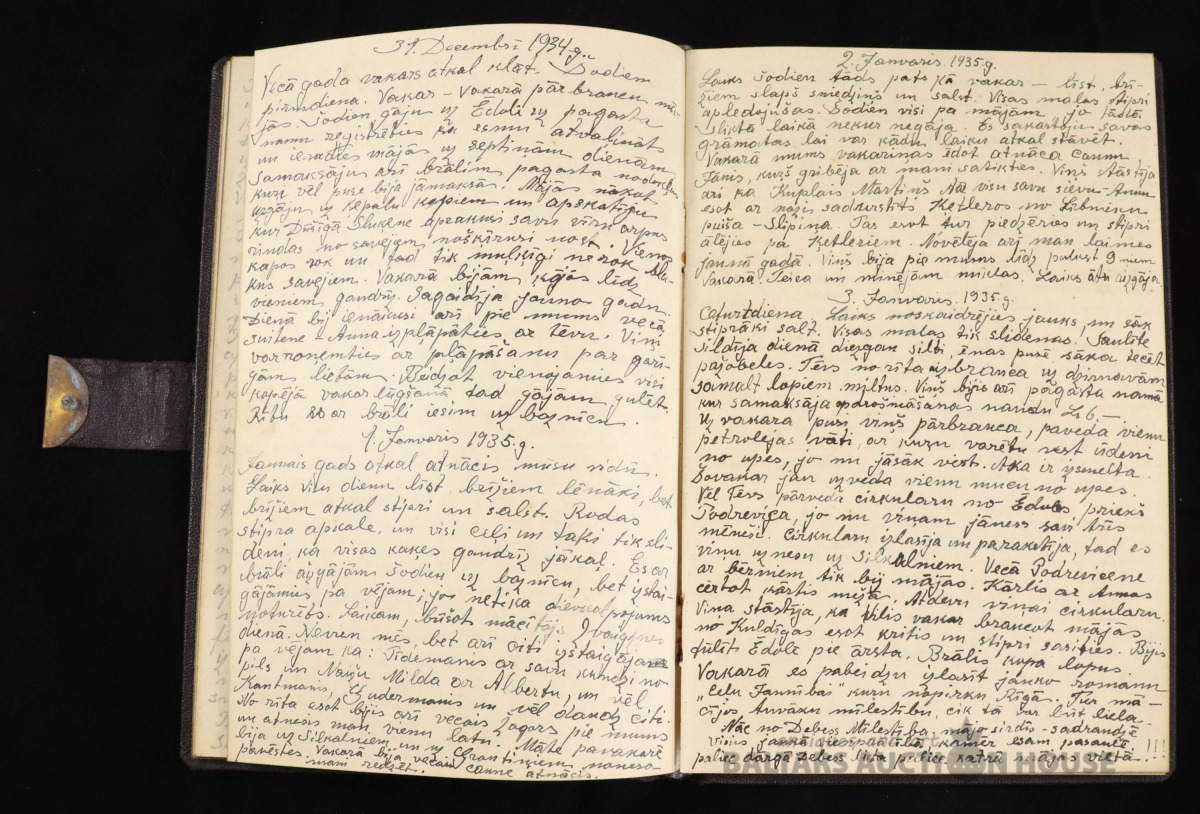 31. Decembrī 1934 g.
Vecā gada vakars atkal klāt. Šodien
pirmdiena. Vakar-Vakarā pārbraucu mā-
jās. Šodien gāju uz Ēdoli uz pagasta
namu reģistrēties ka esmu atvaļināts
un ieradies mājās uz septiņām dienām
samaksāju arī brālim pagasta nodokļus
kuri vēl bija jāmaksā. Mājās nākot
uzgāju uz kapiem un apskatīju
kur Dūšīgā aprakusi savu vīru ārpus
rindas no savejiem noškīrusi nost. Vienos
kapos rok un tad tik muļķīgi nerok bla-
kus savejiem. Vakarā bijām kājās līdz
vieniem gandrīz. Sagaidīja jauno gadu.
Dienā bij ienākusi arī pie mums vecā
Anna izpļāpāties ar tēvu. Viņi
var noņemties ar pļāpāšanu par garī-
gām lietām. Beidzot vienojāmies visi
kopējā vakar lūgšanā tad gājām gulēt.
Rītu ar brāli iesim uz baznīcu.
1. Janvaris 1935. g.
Jaunais gads atkal atnācis mūsu vidū.
Laiks visu dienu līst, brīžiem lēnāki, bet
brīžiem atkal stipri un salst. Rodas
stipra apkale, un visi ceļi un takas tik sli-
deni, ka visas kājas gandrīz jākal. Es ar
brāli aizgājām šodien uz baznīcu, bet izstai-
gājāmies pa vējam, jo netika dievkalpojums
noturēts. Laikam, būšot mācītājs Zvaigznes
dienā. Nevien mēs, bet arī citi izstaigājās
pa vejam kā: Tīdemanis ar savu kundzi no
pils, un Milda ar Albertu, un vēl
Kantmanis, un vēl daudz citi.
No rīta esot bijis arī vecais Zagars pie mums
un atnesis man vienu latu. Māte pavakarē
bija uz Silkalniem, un uz nonesa
pavēstes. Vakarā bija vecais atnācis.
mani redzēt.
2. Janvaris. 1935. g.
Laiks šodien tāds pats kā vakar – līst, brī-
žiem slapš sniedziņš un salst. Visas malas stipri
apledojušas. Šodien visi pa mājām jo tādā
sliktā laikā nekur negāja. Es sakārtoju savas
grāmatas lai var kādu laiku atkal stāvēt.
Vakarā mums vakariņas ēdot atnāca
Jānis, kurš gribēja ar mani satikties. Viņš stāstīja
arī ka Kuplais Mārtiņš visu savu sievu-Annu
esot ar nazi sadurstīti Ķetleros no
puiša – Slipiņa. Tas esot tur piedzēries un stipri
ālējies pa Ķetleriem. Novēlēja arī man laimes
jaunā gadā. Viņš bija pie mums līdz pulkst 9 ņiem
Vakarā. Teica un minējām mīklas. Laiks ātri aizgāja
3. Janvaris. 1935. g.
Ceturtdiena. Laiks noskaidrējies jauks, un sāk
stiprāki salt. Visas malas tik slidenas. Saulīte
sildīja dienā diezgan silti, ēnas pusē sāka tecēt
pažobeles. Tēvs no rīta uzbrauca uz dzirnavām
samalt lopiem miltus. Viņš bijis arī pagasta namā
kur samaksāja apdrošināšanas naudu Ls 6,—
Uz vakara pusi viņš pārbrauca, paveda vienu
petrolejas vāti, ar kuru varētu vest ūdeni
no upes, jo nu jāsāk vest. Aka ir izsmelta.
Šovakar jau uzveda vienu mucu no upes.
Vēl Tēvs pārveda cirkularu no Ēdoles priekš
Podreviča, jo nu viņam jāness savi trīs
mēneši. Cirkularu izlasīja un parakstīja, tad es
viņu uznesu uz Silkalniem. Vecā Podreviene
ar bērniem tik bij mājās. Kārlis ar Annas
certot kārtis mežā. Atdevu viņai cirkularu.
Viņa stāstīja, ka Vilis vakar braucot mājās
no Kuldīgas esot kritis un stipri sasities. Bijis
Ēdole pie ārsta. Brālis kopa lopus
Vakarā es pabeidzu izlasīt jauko romānu
"Ceļu Jaunībai" kuru nopirku Rīgā. Tur mā-
cījos Tuvāku mīlestību, cik tā var būt liela.
Nāc no Debess Mīlestība mājo sirdīs – sadraudzē
visus jaukā vienprātībā kamēr esam pasaulē
paliec dārgā Debess Lita paliec katrā mājas vietā. !!!
BALTARS AUCTION HOUSE